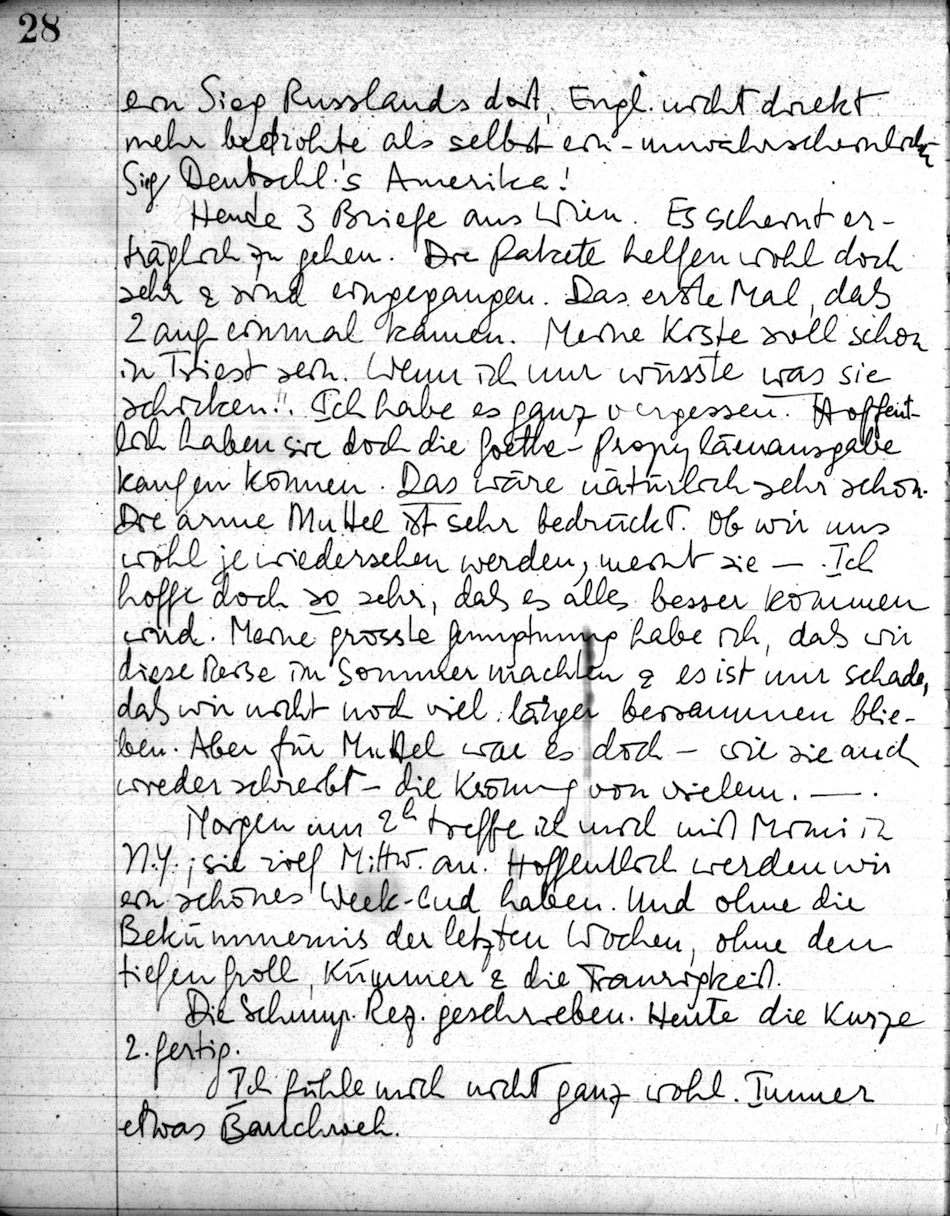 28
ein Sieg Russlands dort, Engl. nicht direkt
mehr bedrohte als selbst ein - unwahrscheinlicher
Sieg Deutschl.'s Amerika!
Heute 3 Briefe aus Wien. Es scheint er-
träglich zu gehen. Die Pakete helfen wohl doch
sehr & sind eingegangen. Das erste Mal, daß
2 auf einmal kamen. Meine Kiste soll schon
in Triest sein. Wenn ich nur wüsste was sie
schicken!! Ich habe es ganz vergessen. Hoffent-
lich haben sie doch die Goethe-Propyläenausgabe
kaufen können. Das wäre natürlich sehr schön.
Die arme Muttel ist sehr bedrückt. Ob wir uns
wohl je wiedersehen werden, meint sie — . Ich
hoffe doch so sehr, daß es alles besser kommen
wird. Meine grösste Genugtuung habe ich, daß wir
diese Reise im Sommer machten & es ist mir schade,
daß wir nicht noch viel länger beisammen blie-
ben. Aber für Muttel war es doch - wie sie auch
wieder schreibt - die Krönung von vielem. — .
Morgen um 2h treffe ich mich mit Mimi in
N.Y.; sie rief Mittw. an. Hoffentlich werden wir
ein schönes Week-End haben. Und ohne die
Bekümmernis der letzten Wochen, ohne den
tiefen Groll, Kummer & die Traurigkeit.
Die Schump. Rez. geschrieben. Heute die kurze
2. fertig.
Ich fühle mich nicht ganz wohl. Immer
etwas Bauchweh.